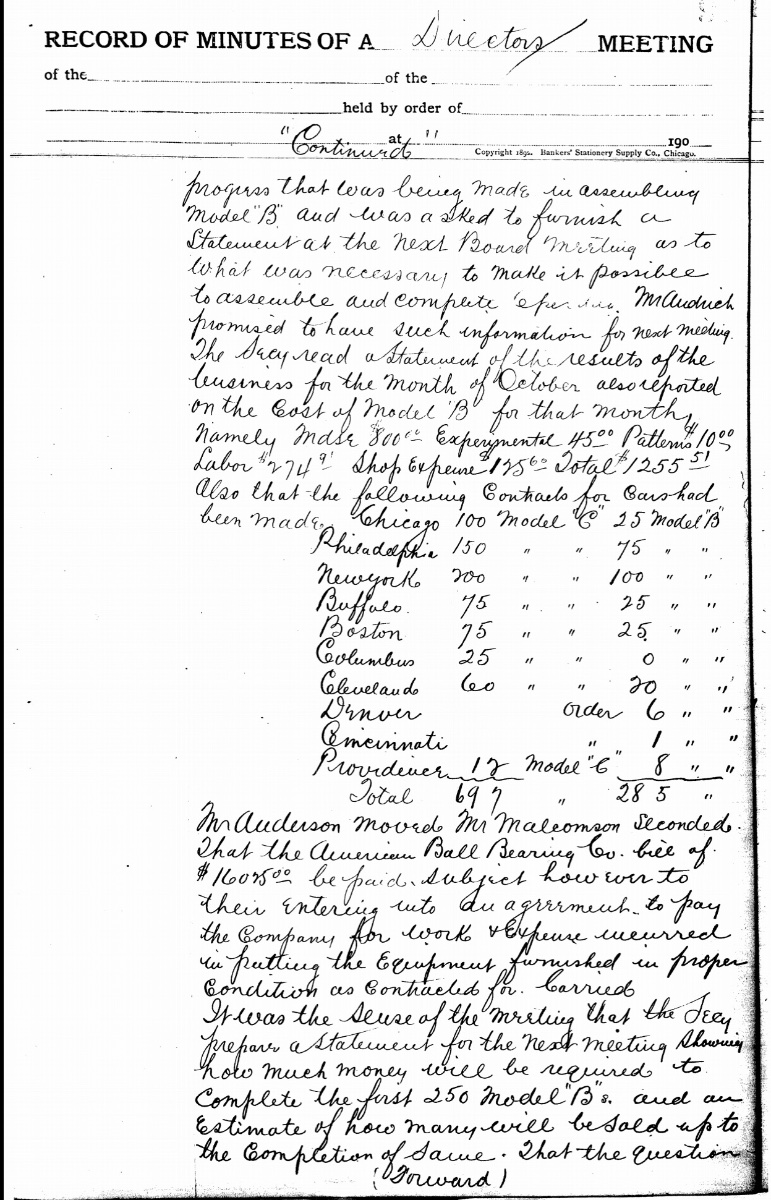 RECORD OF MINUTES OF A Directors MEETING
of the of the
held by order of
"Continued" at 190
Copyright 1892. Bankers' Stationery Supply Co., Chicago.
progress that was being made in assembling
Model "B" and was asked to furnish a
Statement at the next Board meeting as to
what was necessary to make it possible
to assemble and complete Mr Audrich
promised to have such information for next meeting.
The Secy read a statement of the results of the
business for the month of October also reported
on the Cost of Model "B" for that month,
Namely Mdse $800 00 Experimental 45 00 Patterns $10 00,
Labor $274 91 Shop Expense $125 60 Total $1255 51
Also that the following Contracts for Cars had
been made. Chicago 100 Model "C" 25 Model "B"
Philadelphia 150 " " 75 " "
Newyork 200 " " 100 " "
Buffalo. 75 " " 25 " "
Boston 75 " " 25. " "
Columbus 25 " " 0 " "
Cleveland 60 " " 20 " "
Denver order 6 " "
Cincinnati " 1 " "
Providence 12 Model "C" 8 " "
Total 697 " 285 "
Mr Anderson moved Mr Malcomson Seconded.
That the American Ball Bearing Co. bill of
$ be paid. subject however to
their entering into an agreement to pay
the Company for work & Expense incurred
in putting the Equipment furnished in proper
Condition as Contracted for. Carried
It was the sense of the meeting that the Secy
prepare a statement for the next meeting showing
how much money will be required to
Complete the first 250 Model "B"s. and an
Estimate of how many will be sold up to
the Completion of same. That the question
(Forward)